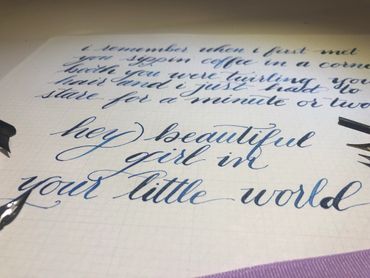 i remember when i first met
you syppin coffee in a corner
booth you were twirling your
hair and i just had to
stare for a minute or two
hey) beautiful
girl in
your little world